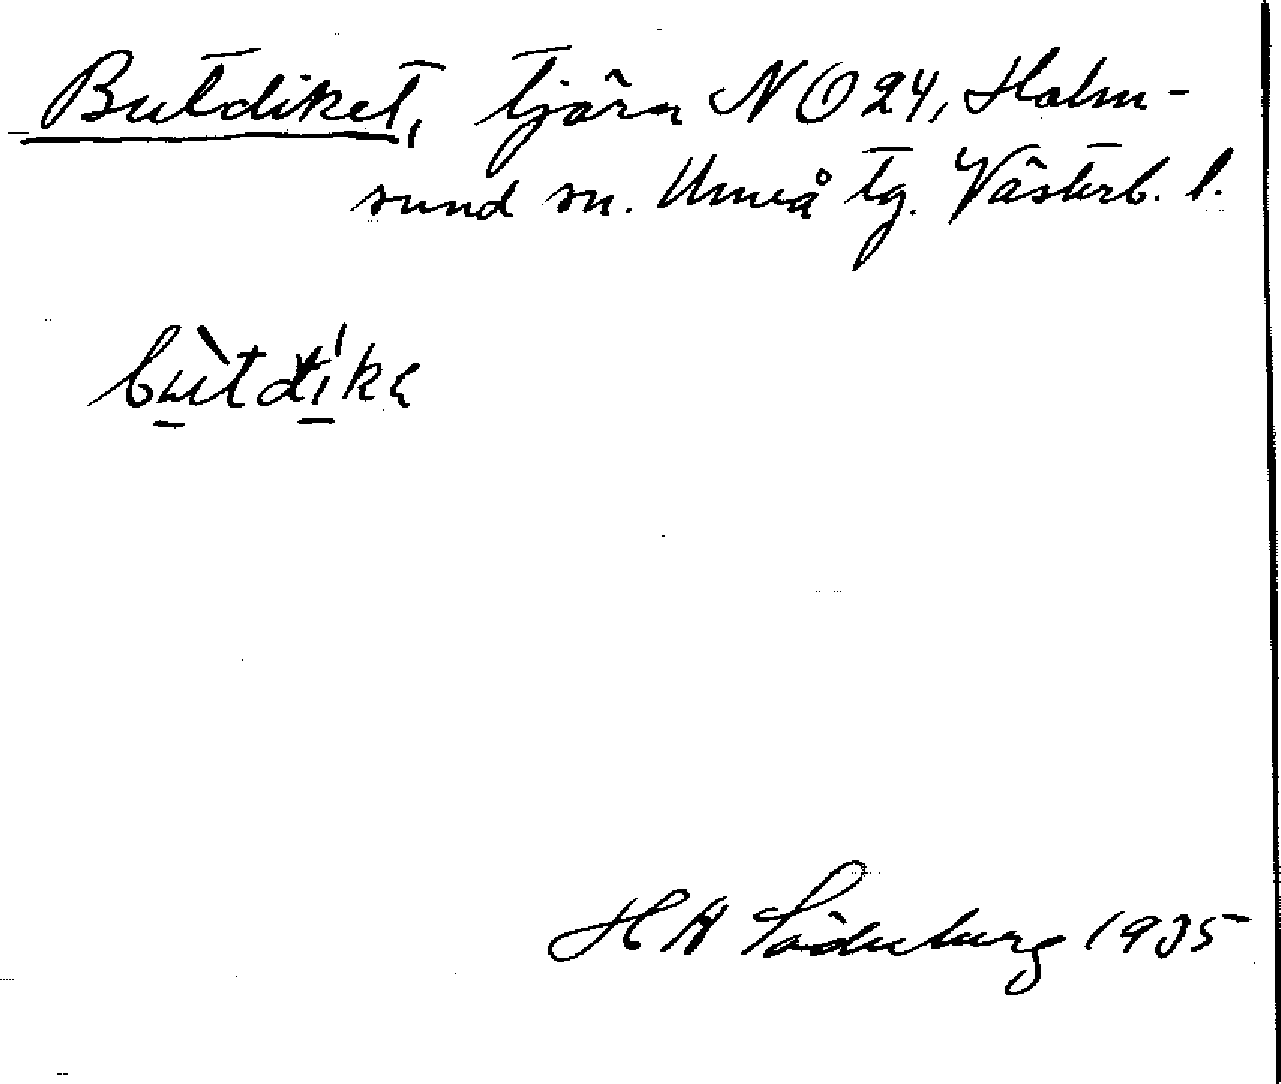 Butdiket, tjärn N O 24, Holm-
sund sn. Umeå tg. Västerb. l.
bùtdíkɛ
H A Söderberg 1935